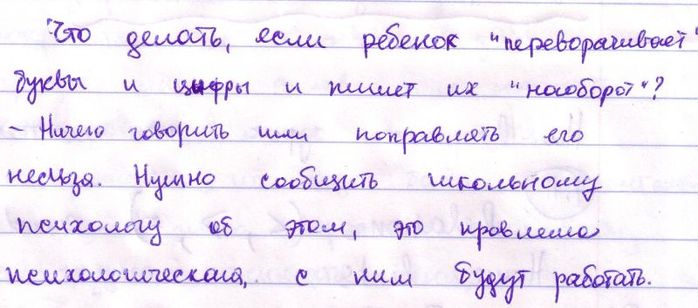 Что делать, если ребенок "переворачивает"
буквы и цифры и пишет их "наоборот"?
- Ничего говорить или поправлять его
нельзя. Нужно сообщить школьному
психологу об этом, это проблема
психологическая, с ним будут работать.